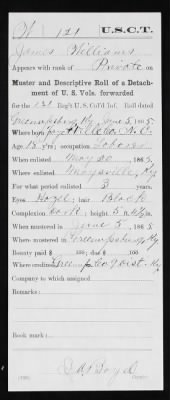 W | 121 | U.S.C.T.
James Williams
Appears with rank of Private on
Muster and Descriptive Roll of a Detach-
ment of U. S. Vols. forwarded
for the 121 Reg't U. S. Col'd Inf. Roll dated
Greenupsburg Ky June 5, 1865.
Where born Fayetteville Co. N.C.
Age 18 y'rs; occupation Laborer
When enlisted May 30, 1865.
Where enlisted Maysville, Ky
For what period enlisted 3 years.
Eyes Hazel; hair Black
Complexion Dark; height 5 ft. in.
When mustered in June 5, 1865
Where mustered in Greenupsburg Ky
Bounty paid $ 100; due $ 100
Where credited Greenup Co 9 Dist. Ky
Company to which assigned
Remarks:
Book mark:
Boyd
Copyist.